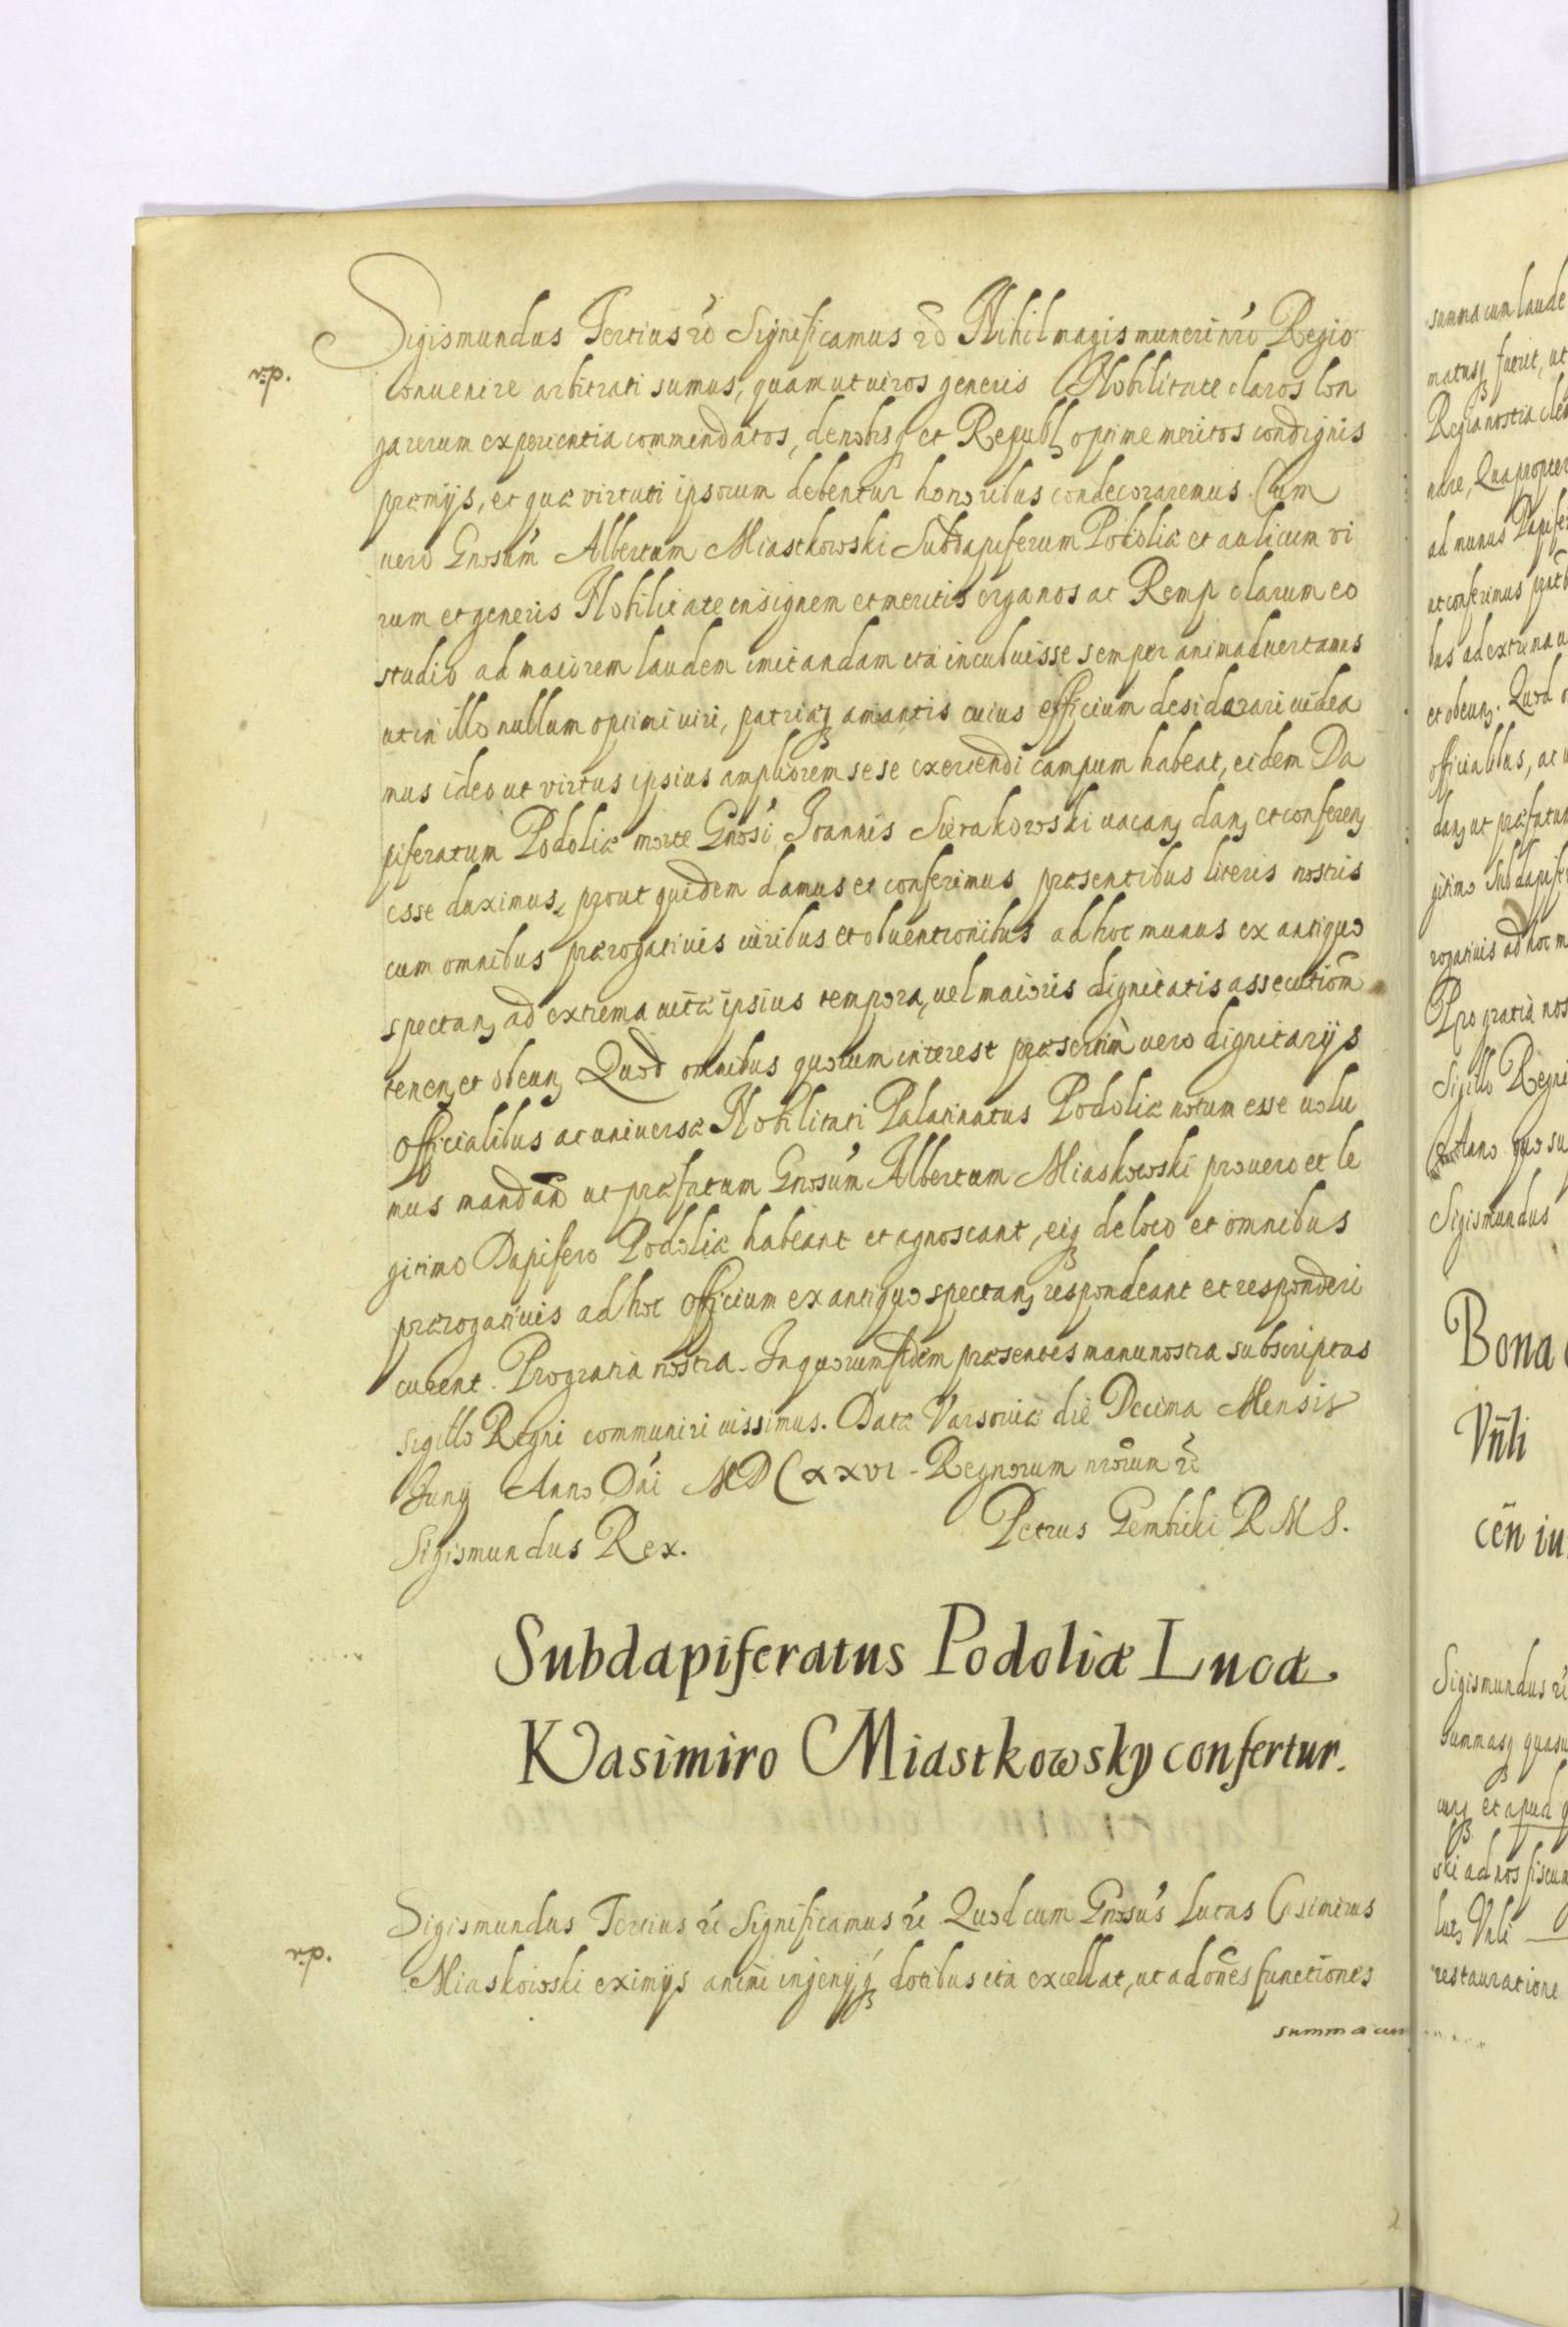 Sigismundus Tertius etc Significamus etc Nihil magis muneri nro Regio
convenire arbitrati sumus, quam ut viros generis Nobilitate claros lon
ga rerum experientia commendatos, de nobisq et Republ optime meritos condignis
præmijs, et quæ virtuti ipsorum debentur honoribus condecoraremus. Cum
vero Gnosum Albertum Miastkowski Subdapiferum Podoliæ et aulicum vi
rum et generis Nobilitate insignem et meritis erga nos ac Remp clarum eo
studio ad maiorem laudem imitandam ita incubuisse semper animadvertamus
ut in illo nullum optimi viri, patriæq amantis civis officium desiderari videa
mus ideo ut virtus ipsius ampliorem sese exercendi campum habeat, eidem Da
piferatum Podoliæ morte Gnosi Joannis Sierakowski vacan, dan, et conferen,
esse duximus, prout quidem damus et conferimus præsentibus literis nostris
cum omnibus prærogativis iuribus et obventionibus ad hoc munus ex antiquo
spectan, ad extrema vitæ ipsius tempora, vel maioris dignitatis assecutiom
tenen, et obeun, Quod omnibus quorum interest præsertim vero dignitarijs
Officialibus ac universæ Nobilitati Palatinatus Podoliæ notum esse volu
mus mandan ut præfatum Gnosum Albertum Miaskowski pro vero et le
gitimo Dapifero Podoliæ habeant et agnoscant, eiq de loco et omnibus
prærogativis ad hoc Officium ex antiquo spectan, respondeant et responderi
curent. Pro gratia nostra. In quorum fidem præsentes manu nostra subscriptas
sigillo Regni communiri iussimus. Datæ Varsoviæ die Decima Mensis
Juny Anno Dni MDCXXVI. Regnorum nrorum etc
Sigismundus Rex. Petrus Gembicki R M S.
Subdapiferatus Podoliæ Lucæ
Kasimiro Miastkowsky confertur.
Sigismundus Tertius etc Significamus etc Quod cum Gnosus Lucas Casimirus
Miaskowski eximijs animi ingenijq dotibus ita excellat, ut ad omes functiones
summa cum
summa cum laude
matusq fuerit, ut
Regia nostra
nare, Quapropter
ad munus Dapife
et conferimus
et obeun, Quod
officialibus, ac
dan, ut præfatum
gitimo Subdapife
rogativis ad hoc m
Pro gratia nos
Sigillo Regni
Anno quo su
Sigismundus
Bona
Vnli
cen iu
Sigismundus etc
summasq quasu
et apud
ski ad nos fiscum
Vnli
restauratione